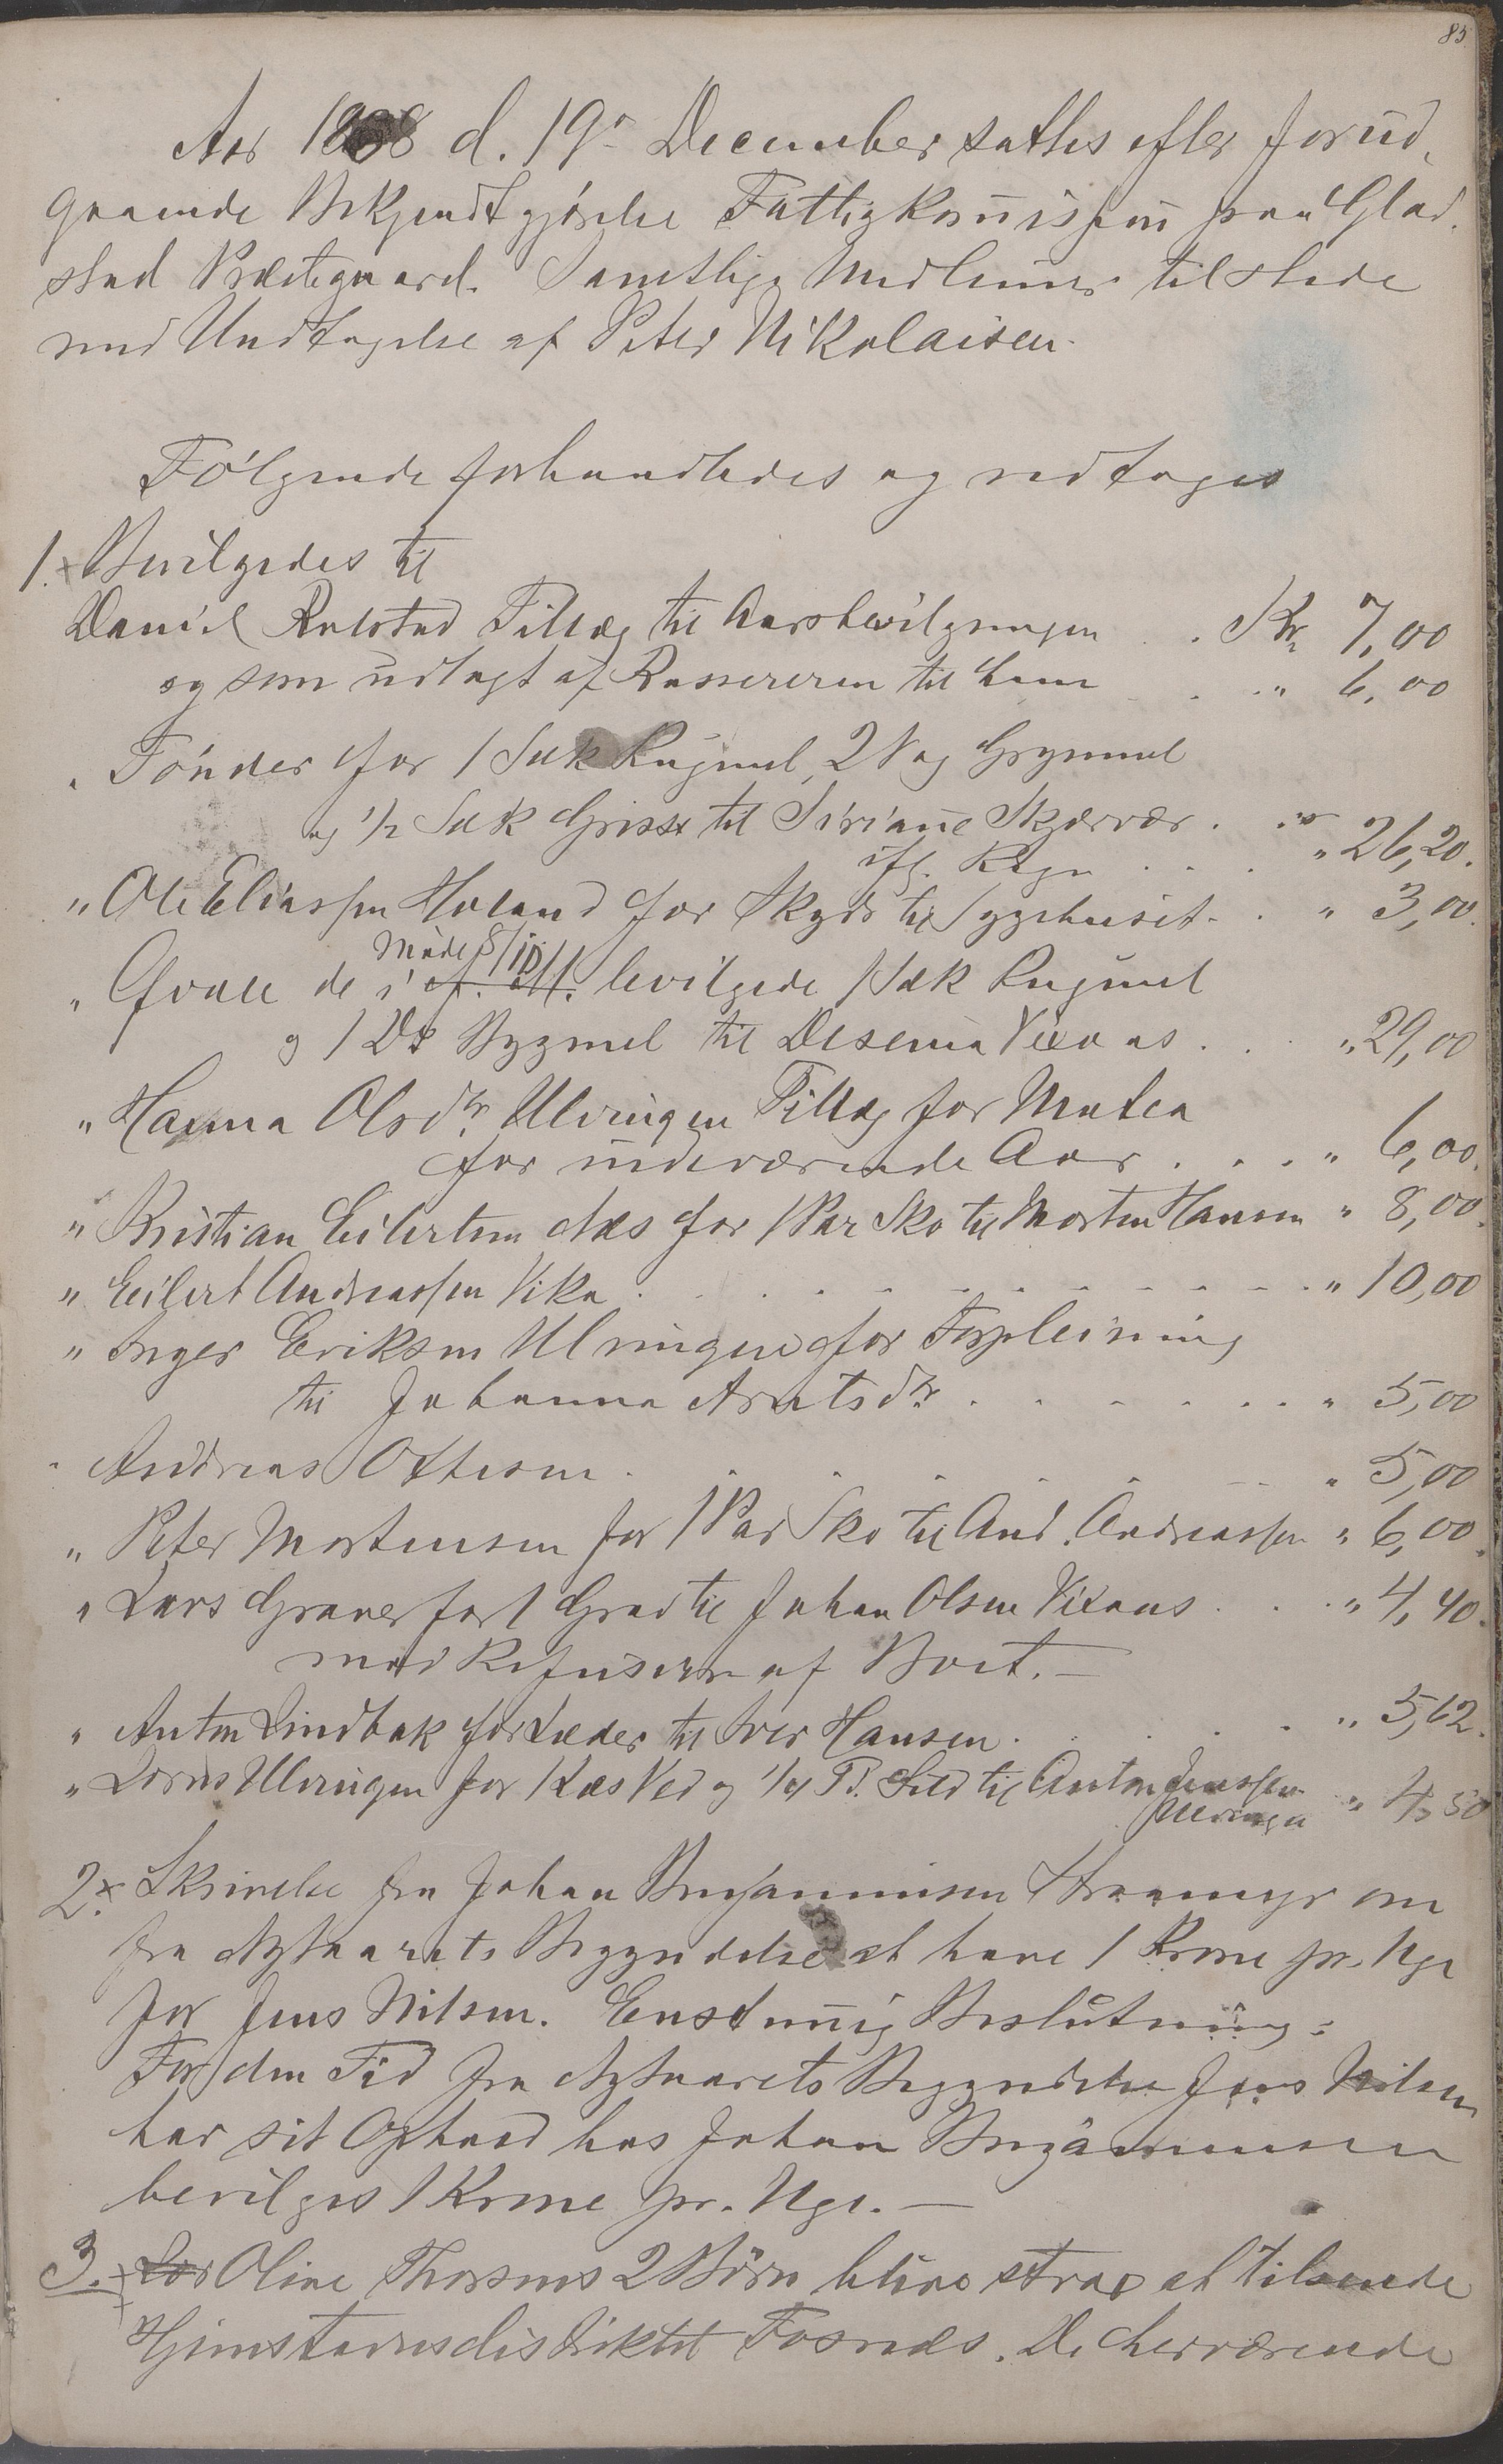 85
Aar 1888 d. 19de December sattes efter forud,
gaaende Bekjendtgjörelse Fattigkommission paa Glad,
stad Præstegaard. Samtlige Medlemmer tilstede
med Undtagelse af Peter Nikolaisen.
Fölgende forhandledes og vedtoges
1. Bevilgedes til
Daniel Rolstad Tillæg til Aarsbevilgningen . . Kr 7,00
og som udlagt af Kassereren til ham . . " 6,00
" Tönder for 1 Sæk Rugmel, 2 Vog Grynmel
og 1/2 Sæk Griss til Siriane Skjærvær . .
ifl. Regn . . . " 26,20.
" Ole Eliassen Holand for Skyds til Sygehuset . . " 3,00.
Möde 8/10
" Qvale de i bevilgede 1 Sæk Rugmel
og 1 Do Bygmel til Desema Vixaas . . . " 29,00
" Hanna Olsdtr. Ulvingen Tillæg for Matea
for indeværende Aar . . . . " 6,00.
" Kristian Eilertsen Næs for 1 Par Sko til Morten Hansen " 8,00.
" Eilert Andreassen Vika . . . . . . . " 10,00
" Inger Eriksen Ulvingen for Forpleining
til Johanna Arntsdtr. . . . . . . " 5,00
" Andreas Ottesen . . . . . . " 5,00
" Peter Mortensen for 1 Par Sko til And. Andreassen " 6,00.
" Lars Graner for 1 Grav til Johan Olsen Vixaas . . . " 4,40.
mod Refusion af Boet. —
" Anton Lindbak for Læder til Iver Hansen . . . . " 5,62.
" Lorns Ulvingen for 1 Læs Ved og 1/4 Td. Sild til Anton Jenssen
Ulvingen " 4,50
2. Skrivelse fra Johan Benjaminsen Straamyr om
fra Nytaarets Begyndelse at have 1 Krone pr. Uge
for Jens Nilsen. Enstemmig Beslutning:
For den Tid fra Nytaarets Begyndelse Jens Nilsen
har sit Ophold hos Johan Benjaminsen
bevilges 1 Krone pr. Uge. —
3. Oline Thorsens 2 Börn blive strax at tilsende
Hjemstavnsdistriktet Fosnæs. De herværende